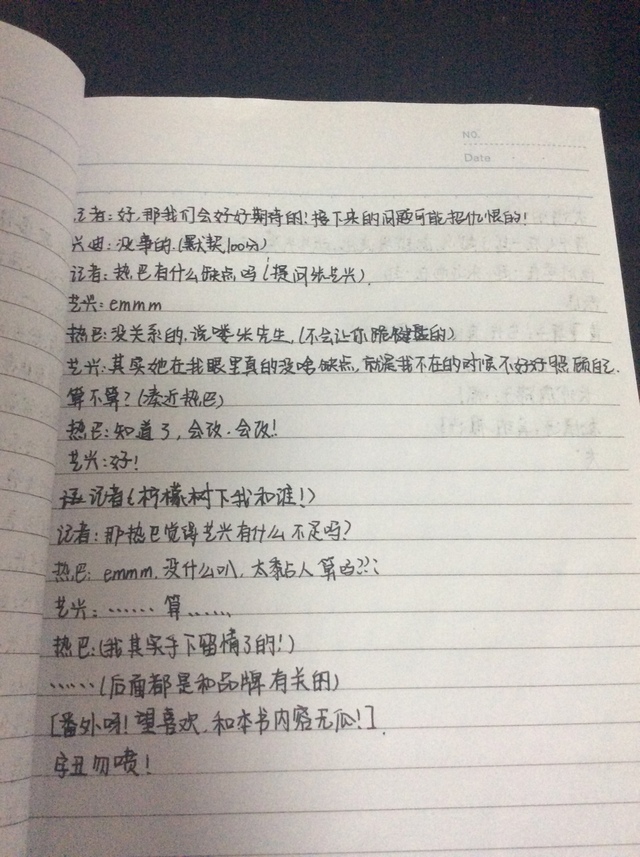 No.
Date
记者:好,那我们会好好期待的!接下来的问题可能招仇恨的!
兴迪:没事的.(默契100分)
记者:热巴有什么缺点吗(提问张艺兴)
艺兴:emmm
热巴:没关系的.说喽张先生,(不会让你跪键盘的)
艺兴:其实她在我眼里真的没啥缺点,就是我不在的时候不好好照顾自己.
算不算?(凑近热巴)
热巴:知道了,会改.会改!
艺兴:好!
记者(柠檬树下我和谁!)
记者:那热巴觉得艺兴有什么不足吗?
热巴:emmm.没什么叭,太黏人算吗??
艺兴:……算……
热巴:(我其实手下留情了的!)
……(后面都是和品牌有关的)
[番外呀!望喜欢,和本书内容无瓜!].
字丑勿喷!